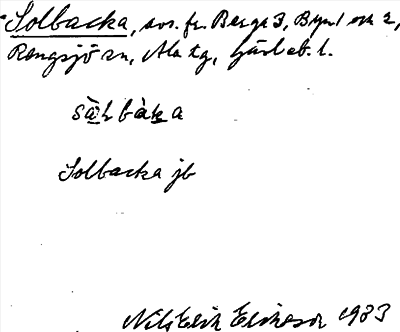 Solbacka, avs. fr. Berga 3, Byn 1 och 2,
Rengsjö sn, Ala tg, Gävleb. l.
sàlbàka
Solbacka jb
Nils Erik Ericsson 1983